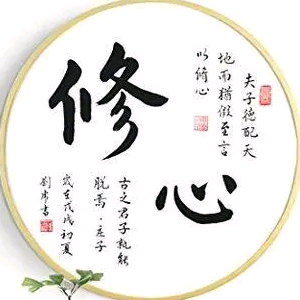 修心
夫子德配天
地而猶假至言
以修心
古之君子孰能
脱焉·庄子
歲在戊戌初夏
劉書